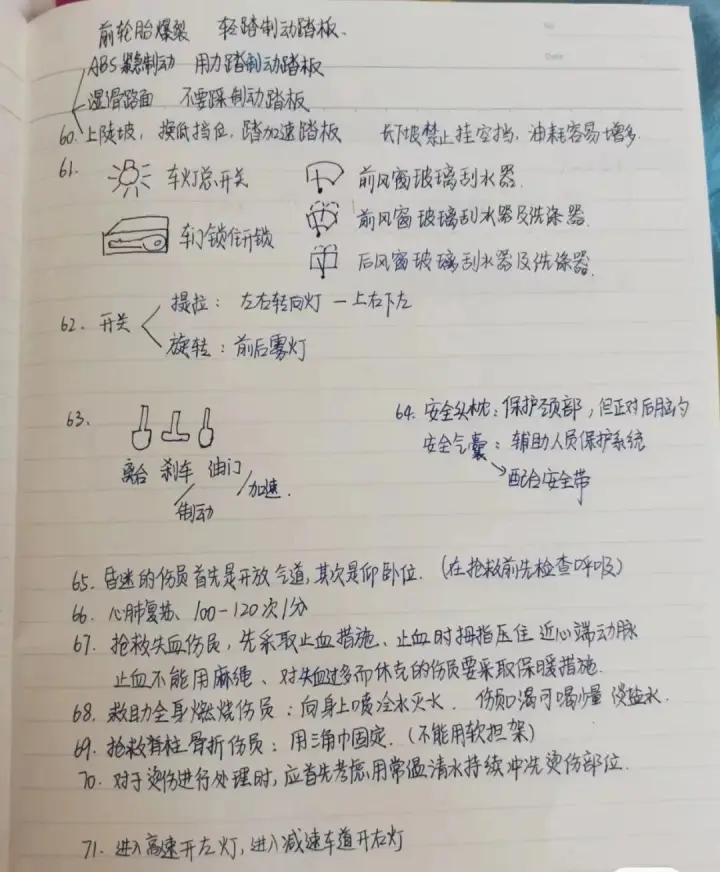 前轮胎爆裂 轻踏制动踏板.
ABS紧急制动 用力踏制动踏板
湿滑路面 不要踩制动踏板
60. 上陡坡, 换低挡位, 踏加速踏板 长下坡禁止挂空挡, 油耗容易增多.
61. 车灯总开关 前风窗玻璃刮水器.
前风窗玻璃刮水器及洗涤器.
车门锁住开锁
后风窗玻璃刮水器及洗涤器.
62. 开关 提拉: 左右转向灯 — 上右下左
旋转: 前后雾灯
63.
离合 刹车 油门
制动 加速.
64. 安全头枕: 保护颈部, 但正对后脑勺
安全气囊: 辅助人员保护系统
配合安全带
65. 昏迷的伤员首先是开放气道, 其次是仰卧位. (在抢救前先检查呼吸)
66. 心肺复苏、100-120次/分
67. 抢救失血伤员, 先采取止血措施、止血时拇指压住近心端动脉
止血不能用麻绳、对失血过多而休克的伤员要采取保暖措施.
68. 救助全身燃烧伤员: 向身上喷冷水灭火. 伤员口渴可喝少量淡盐水.
69. 抢救脊柱骨折伤员: 用三角巾固定. (不能用软担架)
70. 对于烫伤进行处理时, 应首先考虑用常温清水持续冲洗烫伤部位.
71. 进入高速开左灯, 进入减速车道开右灯